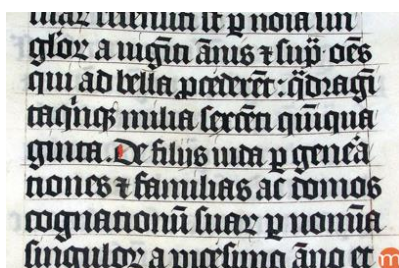 suaꝝ recensiti sūt ꝑ noīa sin
gloꝝ a uigīti ānis ⁊ sup̄· oēs
qui ad bella ꝓcederēt: q̄dragī
taqnqꝫ milia sexcēti quīqua
ginta. De filijs iuda ꝑ genea
tiones ⁊ familias ac domos
cognationū suaꝝ ꝑ nomīa
singuloꝝ a uicesimo āno et
m